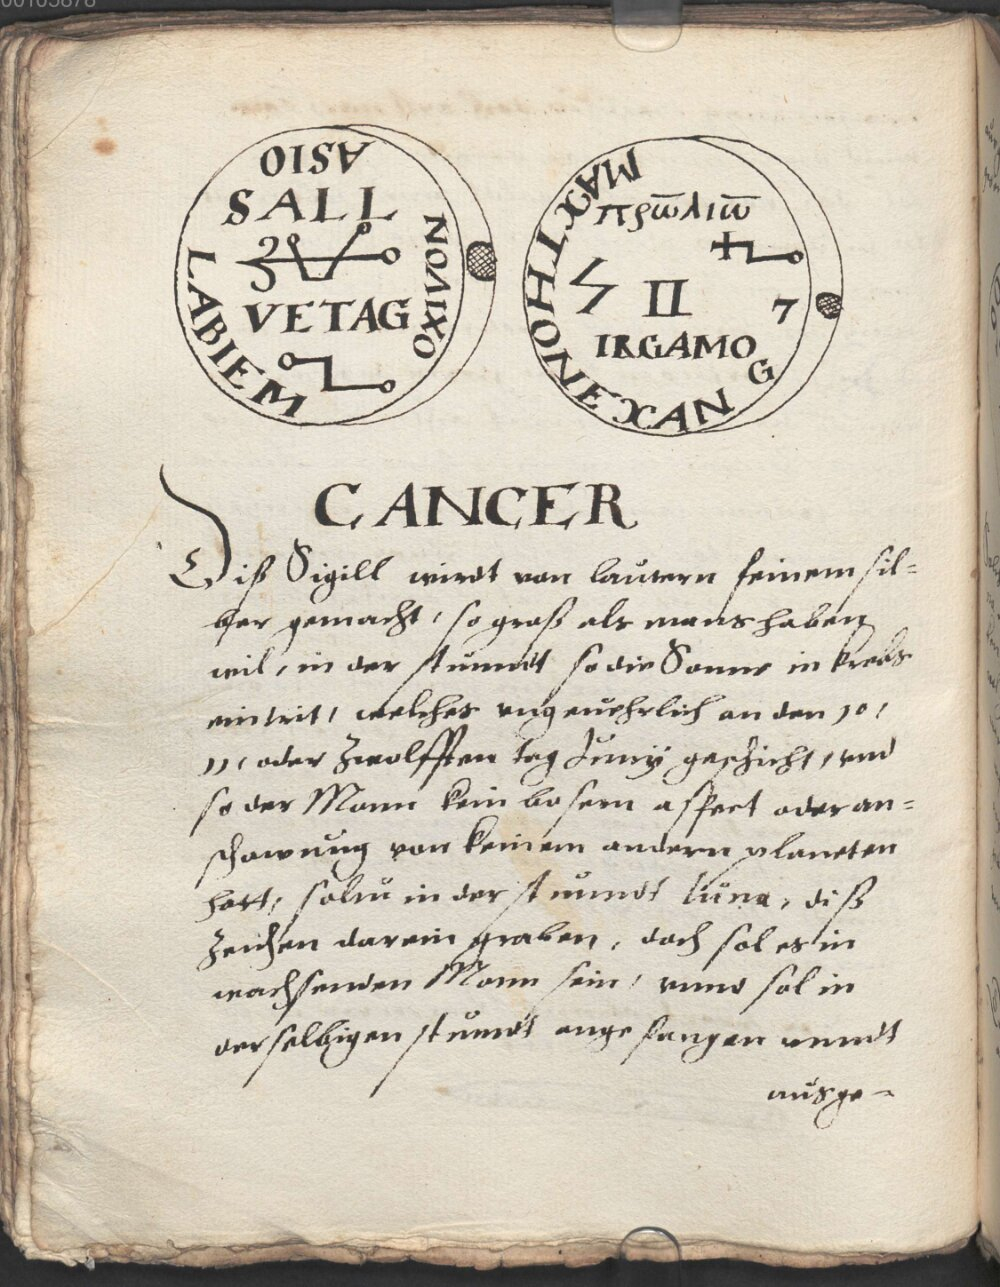 00105878
ASIO
SALL
NOVIXO
LABIEM
VETAG
MAXTHONEXANG
πρω̅λιω̅
II
7
IRGAMO
CANCER
Diß Sigill wirdt von lautern feinem sil=
ber gemacht, so groß als mans haben
wil, in der stundt so die Sonne in krebs
eintrit, welches ungeuehrlich an den 10,
11, oder Zwolfften tag Junij geschicht, und
so der Monn kein bosem aspect oder an=
schawung von keinem andern planeten
hatt, soltu in der stunndt Luna, diß
Zeichen darein graben, doch sol es in
wachsenden Monn sein, unnd sol in
derselbigen stundt angefangen unndt
ausge=